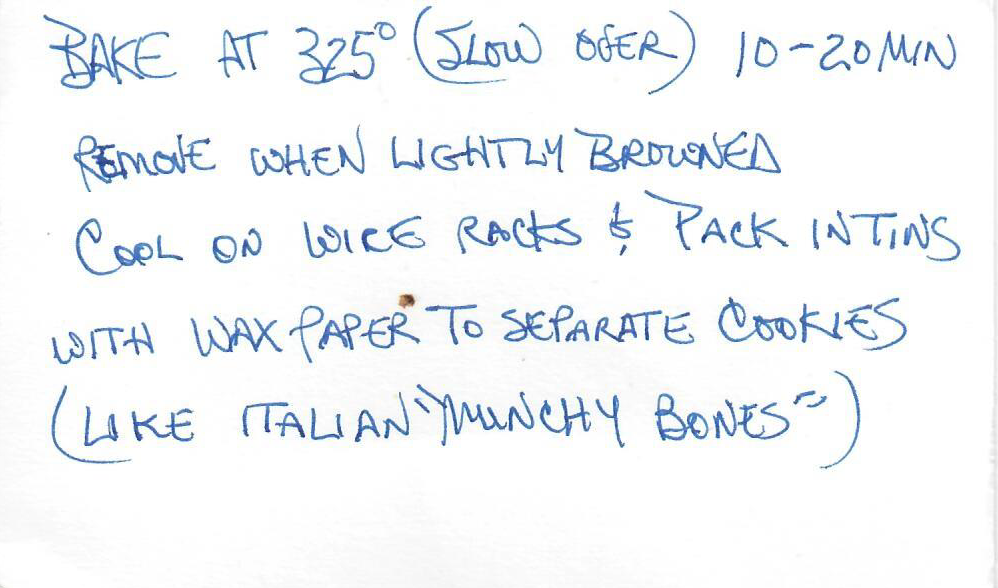 BAKE AT 325° (SLOW OVER) 10-20 MIN
REMOVE WHEN LIGHTLY BROWNED
COOL ON WIRE RACKS & PACK IN TINS
WITH WAX PAPER TO SEPARATE COOKIES
(LIKE ITALIAN "MUNCHY BONES")